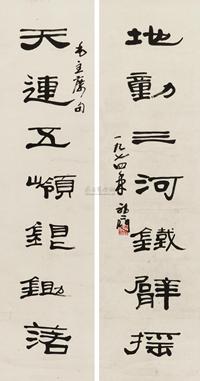 地動三河鐵臂搖
一九七四年
天連五嶺銀鋤落
毛主席句